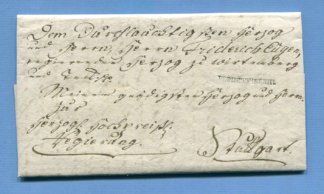 Dem Durchlauchtigsten Herzog
und Herrn, Herrn Friderich Eugen,
regierenden Herzog zu Wirtemberg
und
Meinem gnädigsten Herzog und Herrn.
zur
Herzogl. Hochpreißl.
Regierung.
Stuttgart.